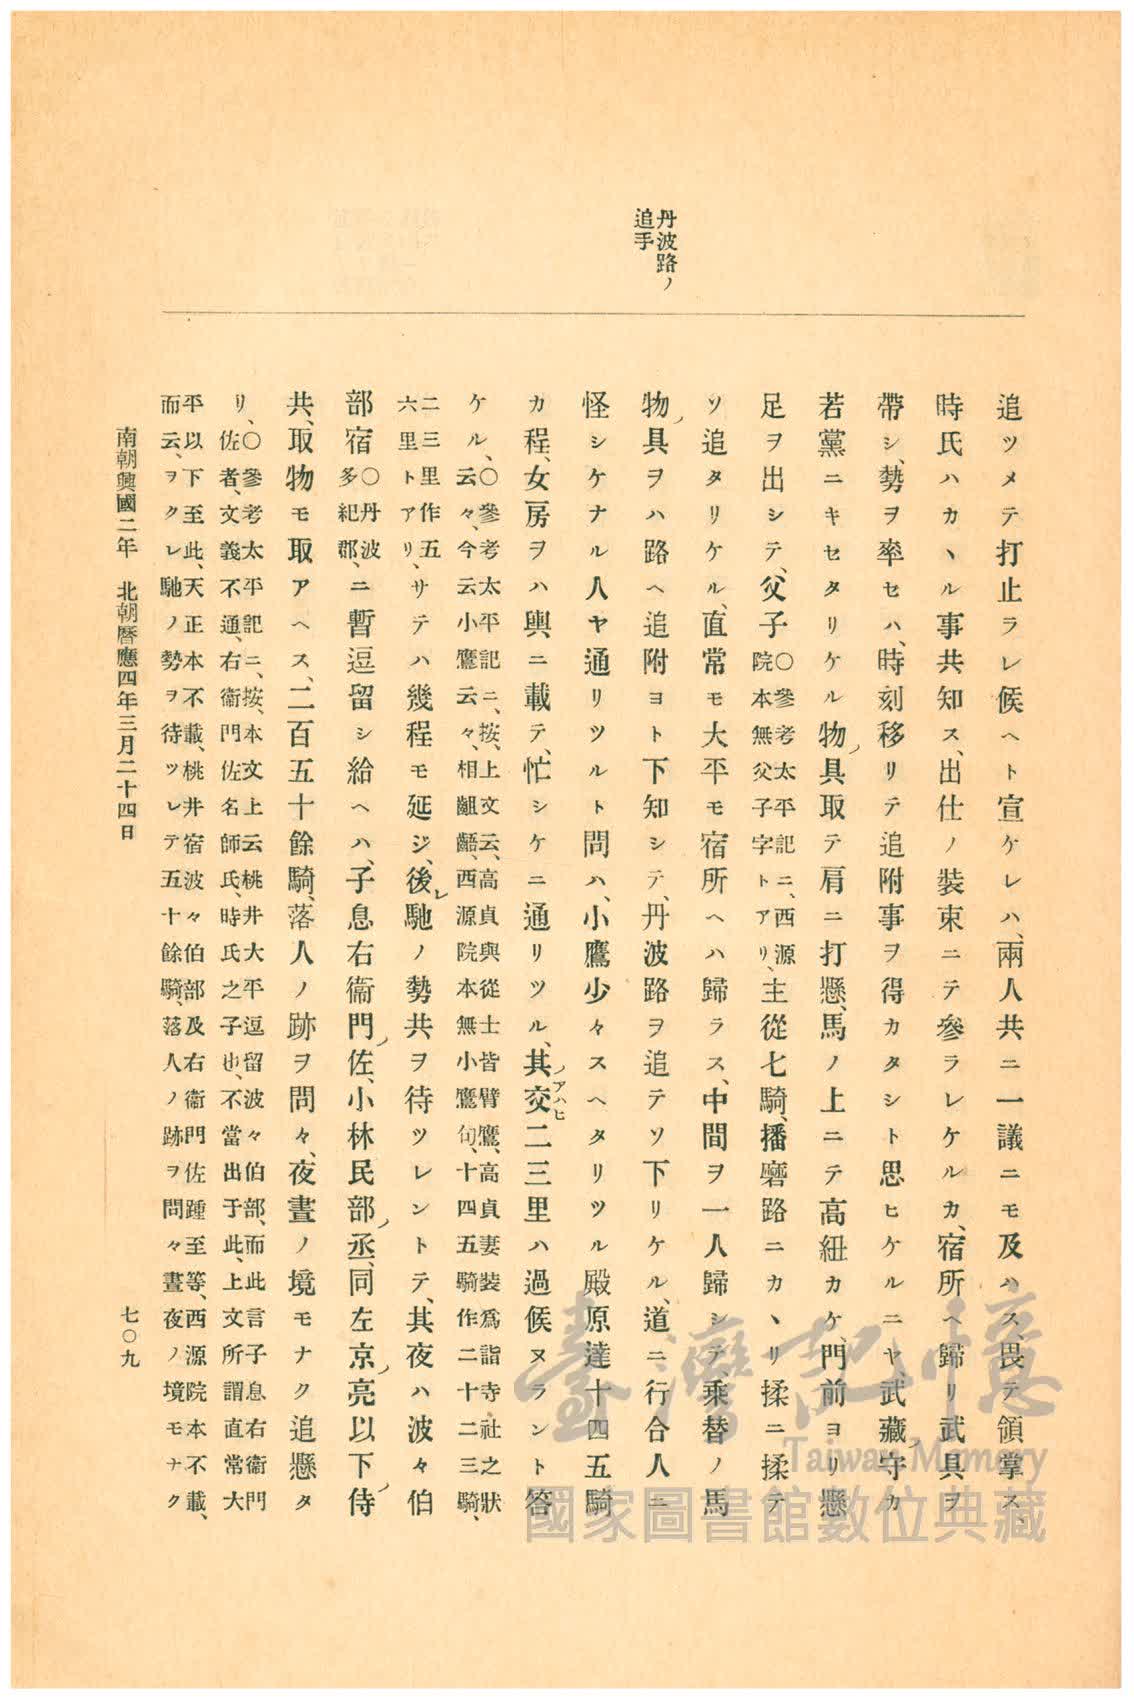 丹波路ノ
追手
追ツメテ打止ラレ候ヘト宣ケレハ、兩人共ニ一議ニモ及ハス畏テ領掌ス、
時氏ハカヽル事共知ス、出仕ノ裝束ニテ參ラレケルカ、宿所ヘ歸リ武具ヲ
帶シ、勢ヲ率セハ、時刻移リテ追附事ヲ得カタシト思ヒケルニヤ、武藏ノ守カ
若黨ニキセタリケル物ノ具取テ肩ニ打懸、馬ノ上ニテ高紐カケ、門前ヨリ懸
足ヲ出シテ、父子〇參考太平記ニ、西源
院本無父子字トアリ、主從七騎、播磨路ニカヽリ揉ニ揉テ
ソ追タリケル、直常モ大平モ宿所ヘハ歸ラス、中間ヲ一人歸シテ、乘替ノ馬
物ノ具ヲハ路ヘ追附ヨト下知シテ、丹波路ヲ追テソ下リケル、道ニ行合人ニ
怪シケナル人ヤ通リツルト問ハ、小鷹少々スヘタリツル殿原達十四五騎
カ程、女房ヲハ輿ニ載テ、忙シケニ通リツル、其ノ交アハヒ二三里ハ過候ヌラント答
ケル、〇參考太平記ニ、按、上文云、高貞與從士皆臂鷹、高貞妻裝爲詣寺社之狀
云々、今云小鷹云々、相齟齬、西源院本無小鷹句、十四五騎作二十二三騎、
二三里作五
六里トアリ、サテハ幾程モ延ジ、後レ馳ノ勢共ヲ待ツレントテ、其夜ハ波々伯
部宿〇丹波
多紀郡、ニ暫逗留シ給ヘハ、子息右衞門ノ佐、小林民部ノ丞、同左京ノ亮以下侍
共、取物モ取アヘス、二百五十餘騎、落人ノ跡ヲ問々、夜晝ノ境モナク追懸タ
リ、〇參考太平記ニ、按、本文上云桃井大平逗留波々伯部、而此言子息右衞門
佐者、文義不通、右衞門佐名師氏、時氏之子也、不當出于此、上文所謂直常大
平以下至此、天正本不載、桃井宿波々伯部及右衞門佐踵至等、西源院本不載、
而云、ヲクレ馳ノ勢ヲ待ツレテ五十餘騎、落人ノ跡ヲ問々晝夜ノ境モナク
南朝興國二年　北朝曆應四年三月二十四日
七〇九
臺灣記憶
Taiwan Memory
國家圖書館數位典藏